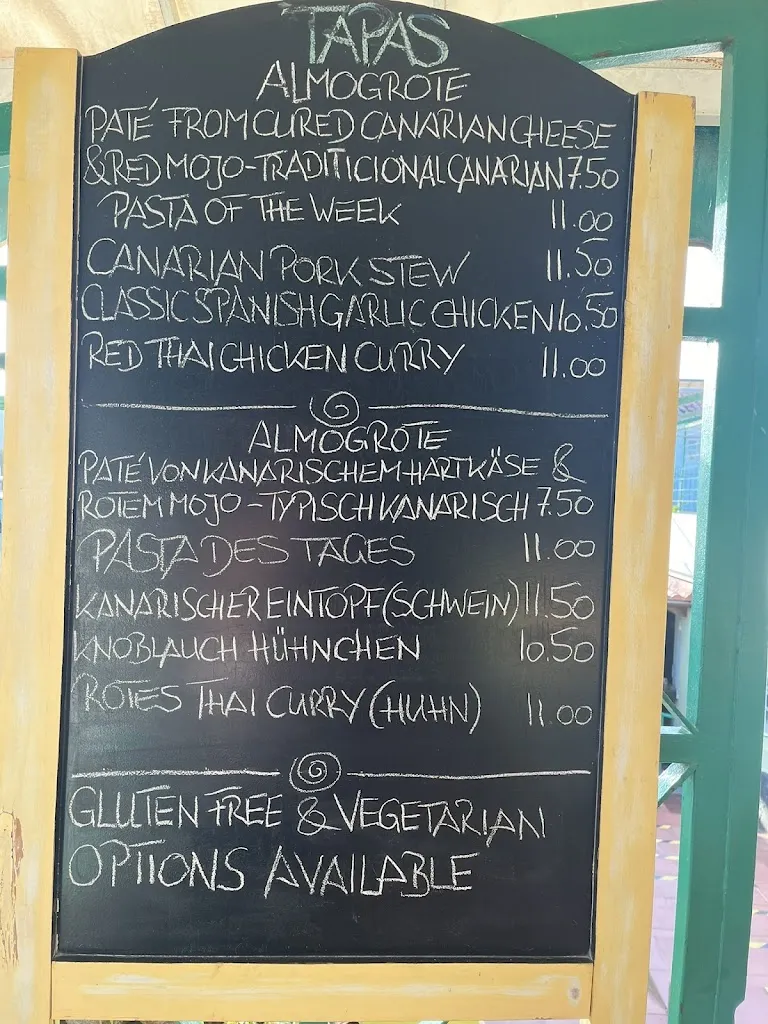 TAPAS
ALMOGROTE
PATÉ FROM CURED CANARIAN CHEESE
& RED MOJO - TRADITICIONAL CANARIAN 7.50
PASTA OF THE WEEK 11.00
CANARIAN PORK STEW 11.50
CLASSIC SPANISH GARLIC CHICKEN 10.50
RED THAI CHICKEN CURRY 11.00
ALMOGROTE
PATÉ VON KANARISCHEM HARTKÄSE &
ROTEM MOJO - TYPISCH KANARISCH 7.50
PASTA DES TAGES 11.00
KANARISCHER EINTOPF (SCHWEIN) 11.50
KNOBLAUCH HÜHNCHEN 10.50
ROTES THAI CURRY (HUHN) 11.00
GLUTEN FREE & VEGETARIAN
OPTIONS AVAILABLE